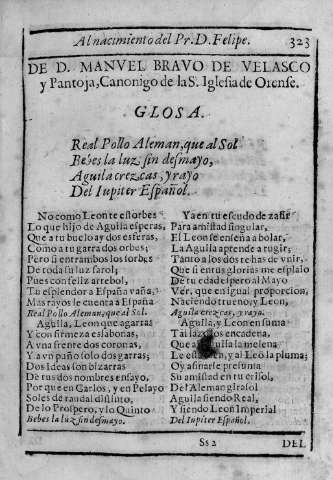 Al nacimiento del Pr. D. Felipe. 323
DE D. MANVEL BRAVO DE VELASCO
y Pantoja, Canonigo de la S. Iglesia de Orense.
GLOSA.
Real Pollo Aleman, que al Sol
Bebes la luz sin desmayo,
Aguila crezcas, y rayo
Del Iupiter Español.
No como Leon te estorbes
Lo que hijo de Aguila esperas,
Que a tu buelo ay dos esferas,
Como a tu garra dos orbes;
Pero si entrambos los sorbes
De toda su luz farol;
Pues con feliz arrebol,
Tu esplendor a España vaña,
Mas rayos le cuenta a España
Real Pollo Aleman, que al Sol.
Aguila, Leon que agarras
Y con firmeza eslabonas,
A vna frente dos coronas,
Y a vn paño solo dos garras;
Dos Ideas son bizarras
De tus dos nombres ensayo,
Porque en Carlos, y en Pelayo
Soles de raudal distinto,
De lo Prospero, y lo Quinto
Bebes la luz sin desmayo.
Ya en tu escudo de zafir
Para amistad singular,
El Leon se enseña a bolar,
La Aguila aprende a rugir;
Tanto a los dos te has de vnir,
Que si en tus glorias me esplayo
De tu edad espero al Mayo
Ver, que en igual proporcion,
Naciendo trueno, y Leon,
Aguila crezcas, y rayo.
Aguila, y Leon en suma
Tai lazo os encadena,
Que a Aguila la melena
Le està bien, y al Leõ la pluma;
Oy afinarse presuma
Su amistad en tu crisol,
Del Aleman girasol
Aguila siendo Real,
Y siendo Leon Imperial
Del Iupiter Español.
Ss 2 DEL